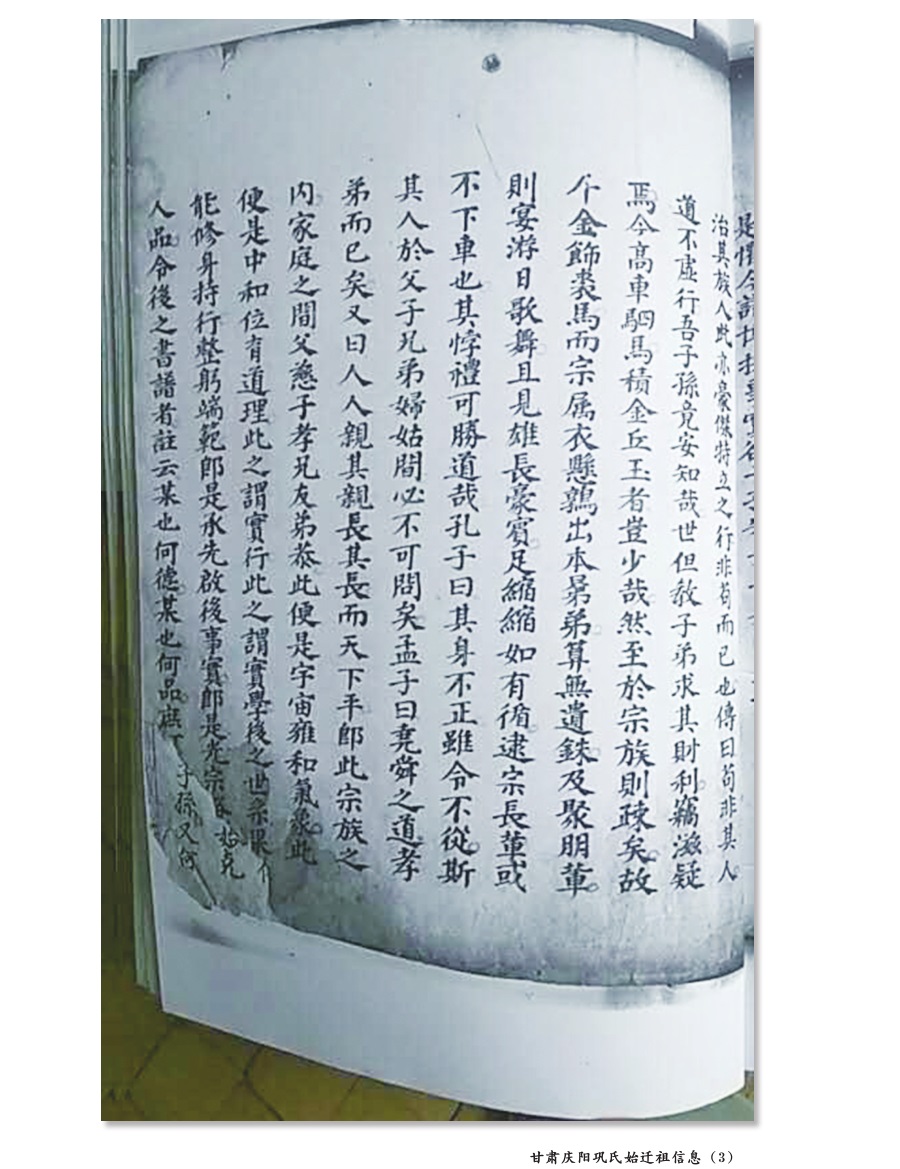 治其族人此亦豪傑特立之行非苟而已也傳曰苟非其人
道不虛行吾子孫竟安知哉世但教子弟求其財利竊滋疑
焉今高車駟馬積金丘玉者豈少哉然至於宗族則疎矣故
个金飾裘馬而宗属衣懸鶉出本㫷弟算無遺銖及聚朋軰
則宴游日歌舞且見雄長豪賓足縮縮如有循逮宗長軰或
不下車也其悖禮可勝道哉孔子曰其身不正雖令不從斯
其人於父子兄弟婦姑間必不可問矣孟子曰堯舜之道孝
弟而已矣又曰人人親其親長其長而天下平郎此宗族之
内家庭之間父慈子孝兄友弟恭此便是宇宙雍和氣象此
便是中和位育道理此之謂實行此之謂實學後之世系
能修身持行整躬端範郎是承先啟後事實郎是光宗 始克
人品令後之書譜者註云某也何德某也何品庶 子孫又何
甘肃庆阳巩氏始迁祖信息（3）